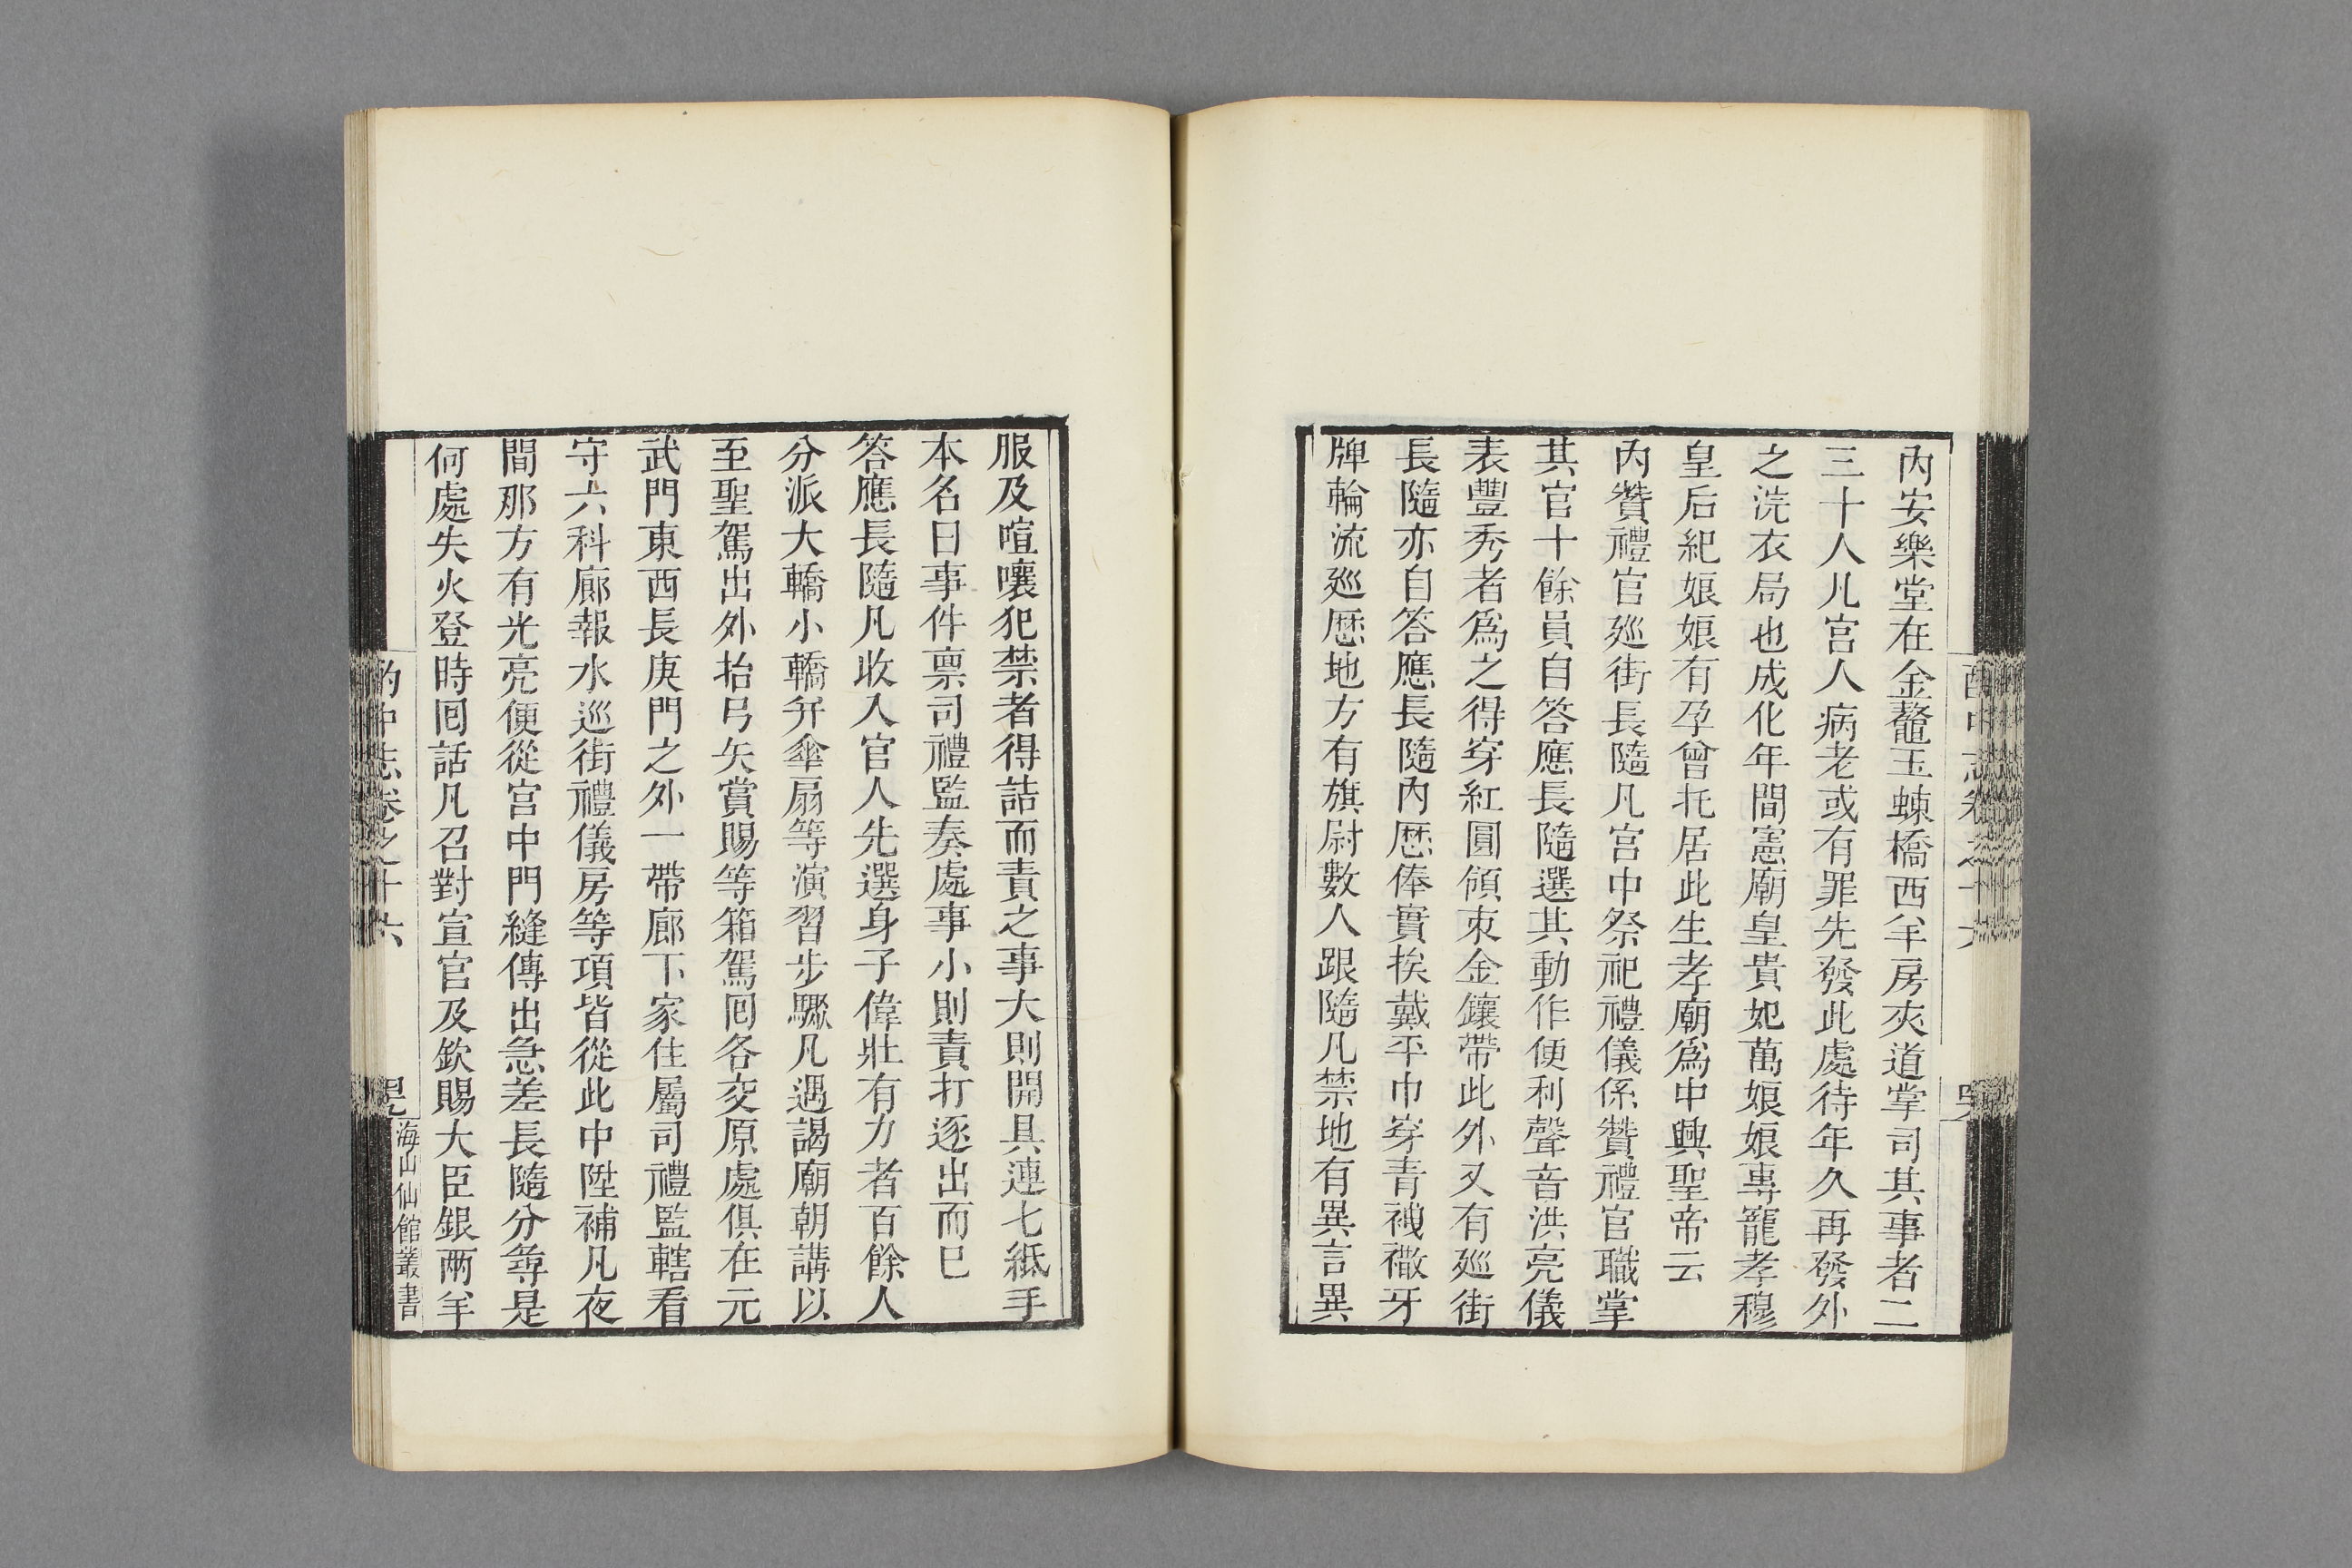 內安樂堂在金鰲玉蝀橋西羊房夾道掌司其事者二
三十人凡宮人病老或有罪先發此處待年久再發外
之浣衣局也成化年間憲廟皇貴妃萬娘娘專寵孝穆
皇后紀娘娘有孕曾托居此生孝廟為中興聖帝云
內贊禮官廵街長隨凡宮中祭祀禮儀係贊禮官職掌
其官十餘員自答應長隨選其動作便利聲音洪亮儀
表豐秀者為之得穿紅圓領束金鑲帶此外又有廵街
長隨亦自答應長隨內歷俸實挨戴平巾穿青襪𧞤牙
牌輪流廵歷地方有旗尉數人跟隨凡禁地有異言異
服及喧嚷犯禁者得詰而責之事大則開具連七紙手
本名曰事件禀司禮監奏處事小則責打逐出而已
答應長隨凡收入官人先選身子偉壯有力者百餘人
分派大轎小轎并傘扇等演習步驟凡遇謁廟朝講以
至聖駕出外抬弓矢賞賜等箱駕囘各交原處俱在元
武門東西長庚門之外一帶廊下家住屬司禮監轄看
守六科廊報水巡街禮儀房等項皆從此中陞補凡夜
間那方有光亮便從宮中門縫傳出急差長隨分尋是
何處失火登時囘話凡召對宣官及欽賜大臣銀兩羊
酌中志卷之十六
海山仙館叢書